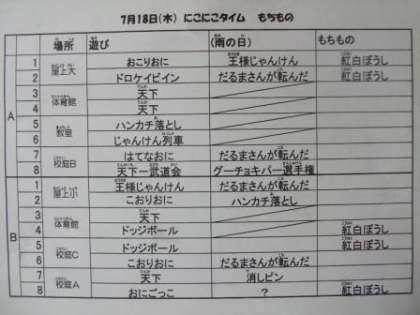 7月18日(木) にこにこタイム もちもの
場所 遊び (雨の日) もちもの
A
1 屋上大 おこりおに 王様じゃんけん 紅白ぼうし
2 ドロケイビイン だるまさんが転んだ 紅白ぼうし
3 体育館 天下
4 天下
5 教室 ハンカチ落とし
6 じゃんけん列車
7 校庭B はてなおに だるまさんが転んだ 紅白ぼうし
8 天下一武道会 グーチョキパー選手権 紅白ぼうし
B
1 屋上小 王様じゃんけん だるまさんが転んだ 紅白ぼうし
2 こおりおに ハンカチ落とし 紅白ぼうし
3 体育館 天下
4 ドッジボール 紅白ぼうし
5 校庭C ドッジボール 紅白ぼうし
6 こおりおに だるまさんが転んだ
7 校庭A 天下 消しピン
8 おにごっこ ? 紅白ぼうし